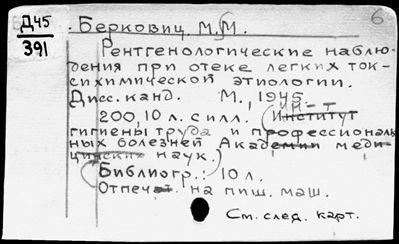 Д45
391
6
Беркович, М.М.
Рентгенологические наблю-
дения при отеке легких ток-
сихимической этиологии.
Дисс. канд. М., 1945
200, 10 л. с илл. (Институт ин-т
гигиены труда и профессиональ
ных болезней Академии меди-
цинских наук.)
Библиогр.: 10 л.
Отпечат. на пиш. маш.
См. след. карт.